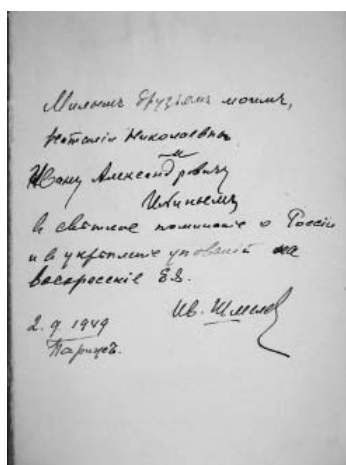 Милымъ друзьямъ моимъ,
Наталіи Николаевнѣ
и
Ивану Александровичу
Ильинымъ
въ свѣтлое поминаніе о Россіи
и въ укрѣпленіе упованій на
воскресеніе Ея.
Ив. Шмелев
2. 9. 1949
Парижъ.